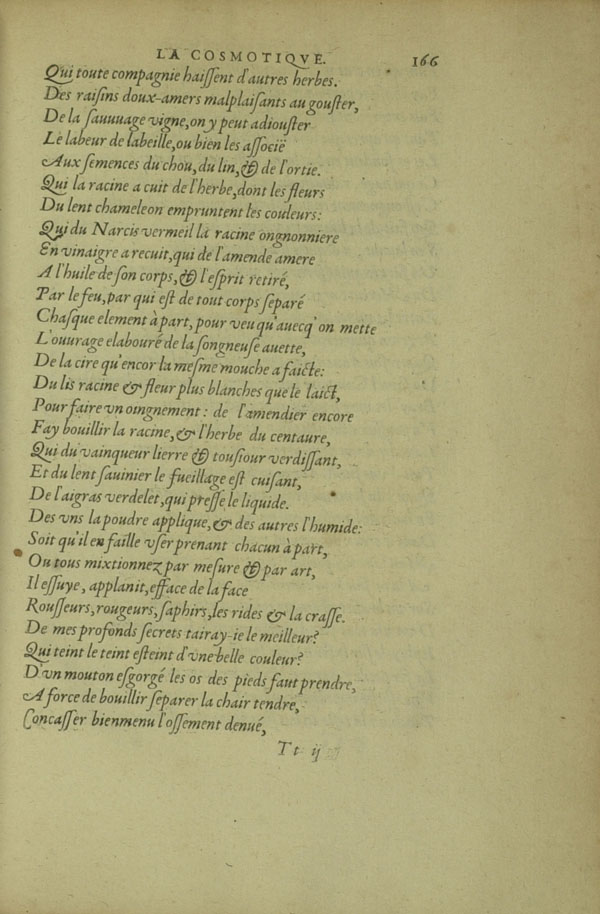 LA COSMOTIQVE. 166
Qui toute compagnie haiſſent d'autres herbes.
Des raiſins doux-amers malplaiſants au gouſter,
De la ſauuuage vigne, on y peut adiouſter
Le labeur de labeille, ou bien les aſſocië
Aux ſemences du chou, du lin, & de l'ortie.
Qui la racine a cuit de l'herbe, dont les fleurs
Du lent chameleon empruntent les couleurs:
Qui du Narcis vermeil la racine ongnonniere
En vinaigre a recuit, qui de l'amende amere
A l'huile de ſon corps, & l'eſprit retiré,
Par le feu, par qui eſt de tout corps ſeparé
Chaſque element à part, pour veu qu'auecq' on mette
L'ouurage elabouré de la ſongneuſe auette,
De la cire qu'encor la meſme mouche a faicte:
Du lis racine & fleur plus blanches que le laict,
Pour faire vn oingnement: de l'amendier encore
Fay bouillir la racine, & l'herbe du centaure,
Qui du vainqueur lierre & touſiour verdiſſant,
Et du lent ſauinier le fueillage eſt cuiſant,
De l'aigras verdelet, qui preſſe le liquide.
Des vns la poudre applique, & des autres l'humide:
Soit qu'il en faille vſer prenant chacun à part,
Ou tous mixtionnez par meſure & par art,
Il eſſuye, applanit, efface de la face
Rouſſeurs, rougeurs, ſaphirs, les rides & la craſſe.
De mes profonds ſecrets tairay-ie le meilleur?
Qui teint le teint eſteint d'vne belle couleur?
D'vn mouton eſgorgé les os des pieds faut prendre,
A force de bouillir ſeparer la chair tendre,
Concaſſer bien menu l'oſſement denué,
Tt ij